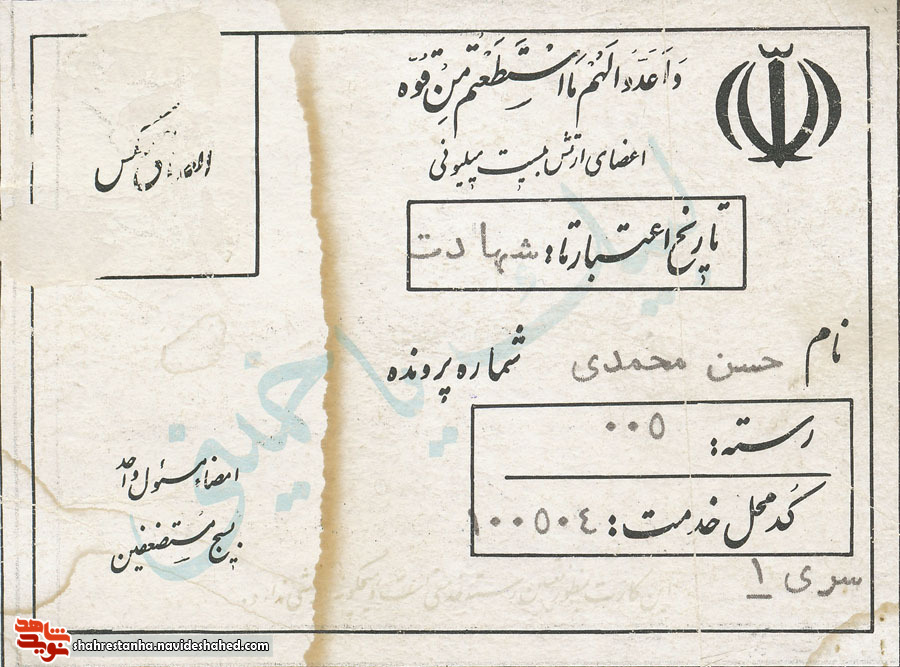 وَاَعِدّوا لَهُمْ مَا اسْتَطَعْتُم مِنْ قُوّه
اعضای ارتش بیست میلیونی
تاریخ اعتبار تا: شهادت
نام حسن محمدی
شماره پرونده
رسته: ۰۰۵
کُد محل خدمت: ۱۰۰۵۰٤
سری ۱
عکس
امضاء مسئول واحد
بسیج مستضعفین
لبیک یا خمینی
شاهد
نوید
shahrestanha.navideshahed.com